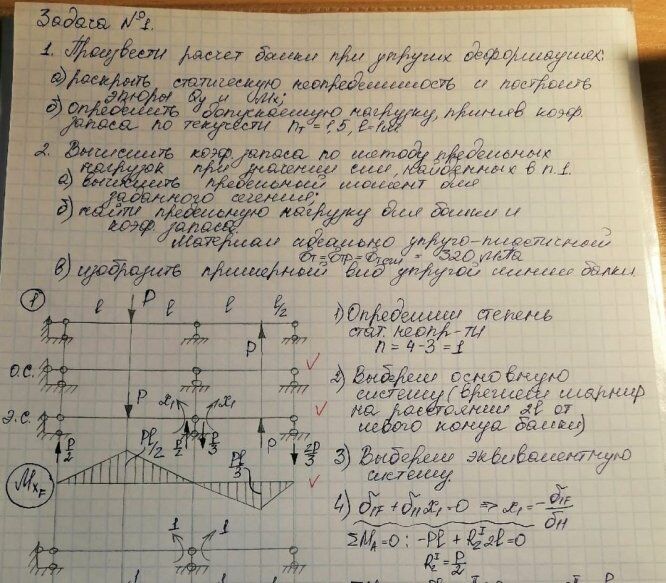 Задача №1.
1. Произвести расчет балки при упругих деформациях:
а) раскрыть статическую неопределимость и построить
эпюры Qy и Mx;
б) определить допускаемую нагрузку, приняв коэф.
запаса по текучести nт = 1,5, l = 1м
2. Вычислить коэф запаса по методу предельных
нагрузок при значении сил, найденных в п.1.
а) вычислить предельный момент для
заданного сечения;
б) найти предельную нагрузку для балки и
коэф. запаса.
Материал идеально упруго-пластичный
σт = σтр = σтсж = 320 МПа
в) изобразить примерный вид упругой линии балки
1
l P l l l/2
P
О.С.
P
Э.С. x1 x1
P/2 Pl/2 P/2 P/3 Pl/3 P 2P/3
MxF
1 1
1) Определим степень
стат. неопр-ти
n = 4-3 = 1
2) Выберем основную
систему (врежем шарнир
на расстоянии 2l от
левого конца балки)
3) Выберем эквивалентную
систему.
4) δ1F + δ11x1 = 0 ⇒ x1 = -δ1F/δ11
ΣMA = 0: -Pl + R2^I 2l = 0
R2^I = P/2